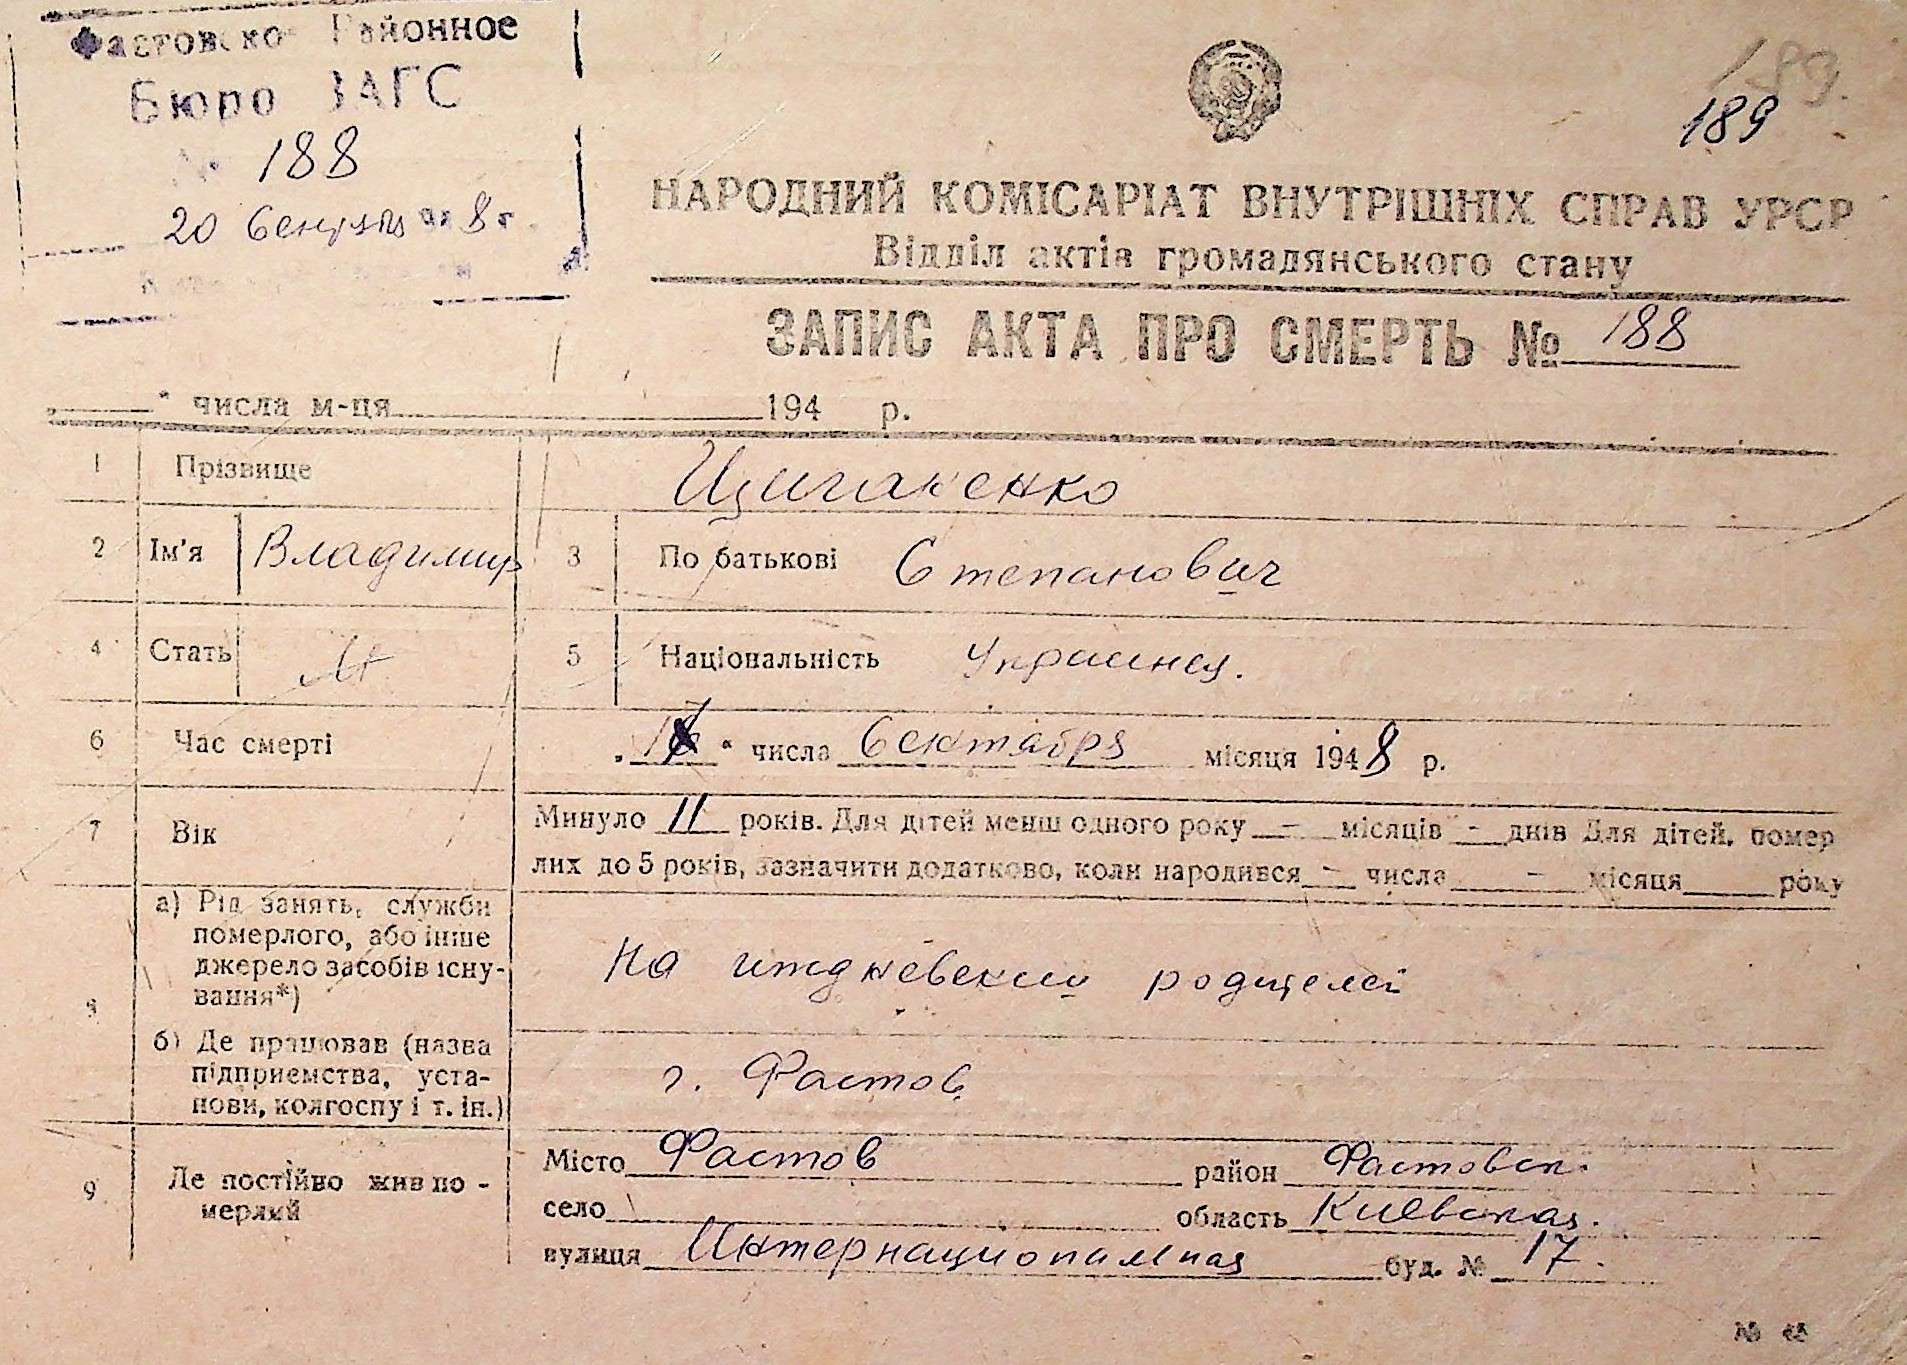 Фастовско Районное
Бюро ЗАГС
№ 188
20 Сентря 194 8 г.
189
189
НАРОДНИЙ КОМІСАРІАТ ВНУТРІШНІХ СПРАВ УРСР
Відділ актів громадянського стану
ЗАПИС АКТА ПРО СМЕРТЬ № 188
" числа м-ця 194 р.
1 Прізвище Циганенко
2 Ім'я Владимир 3 По батькові Степанович
4 Стать М 5 Національність Украинец.
6 Час смерті " числа Сентября місяця 1948 р.
7 Вік Минуло 11 років. Для дітей менш одного року - місяців - днів Для дітей, помер
лих до 5 років, зазначити додатково, коли народився - числа - місяця року
8 а) Рід занять, служби
померлого, або інше
джерело засобів існу-
вання*)
На иждневении родителей
б) Де працював (назва
підприємства, уста-
нови, колгоспу і т. ін.)
г. Фастов
9 Де постійно жив по-
мерлий
Місто Фастов район Фастовск.
село область Киевская.
вулиця Интернациональная буд. № 17.